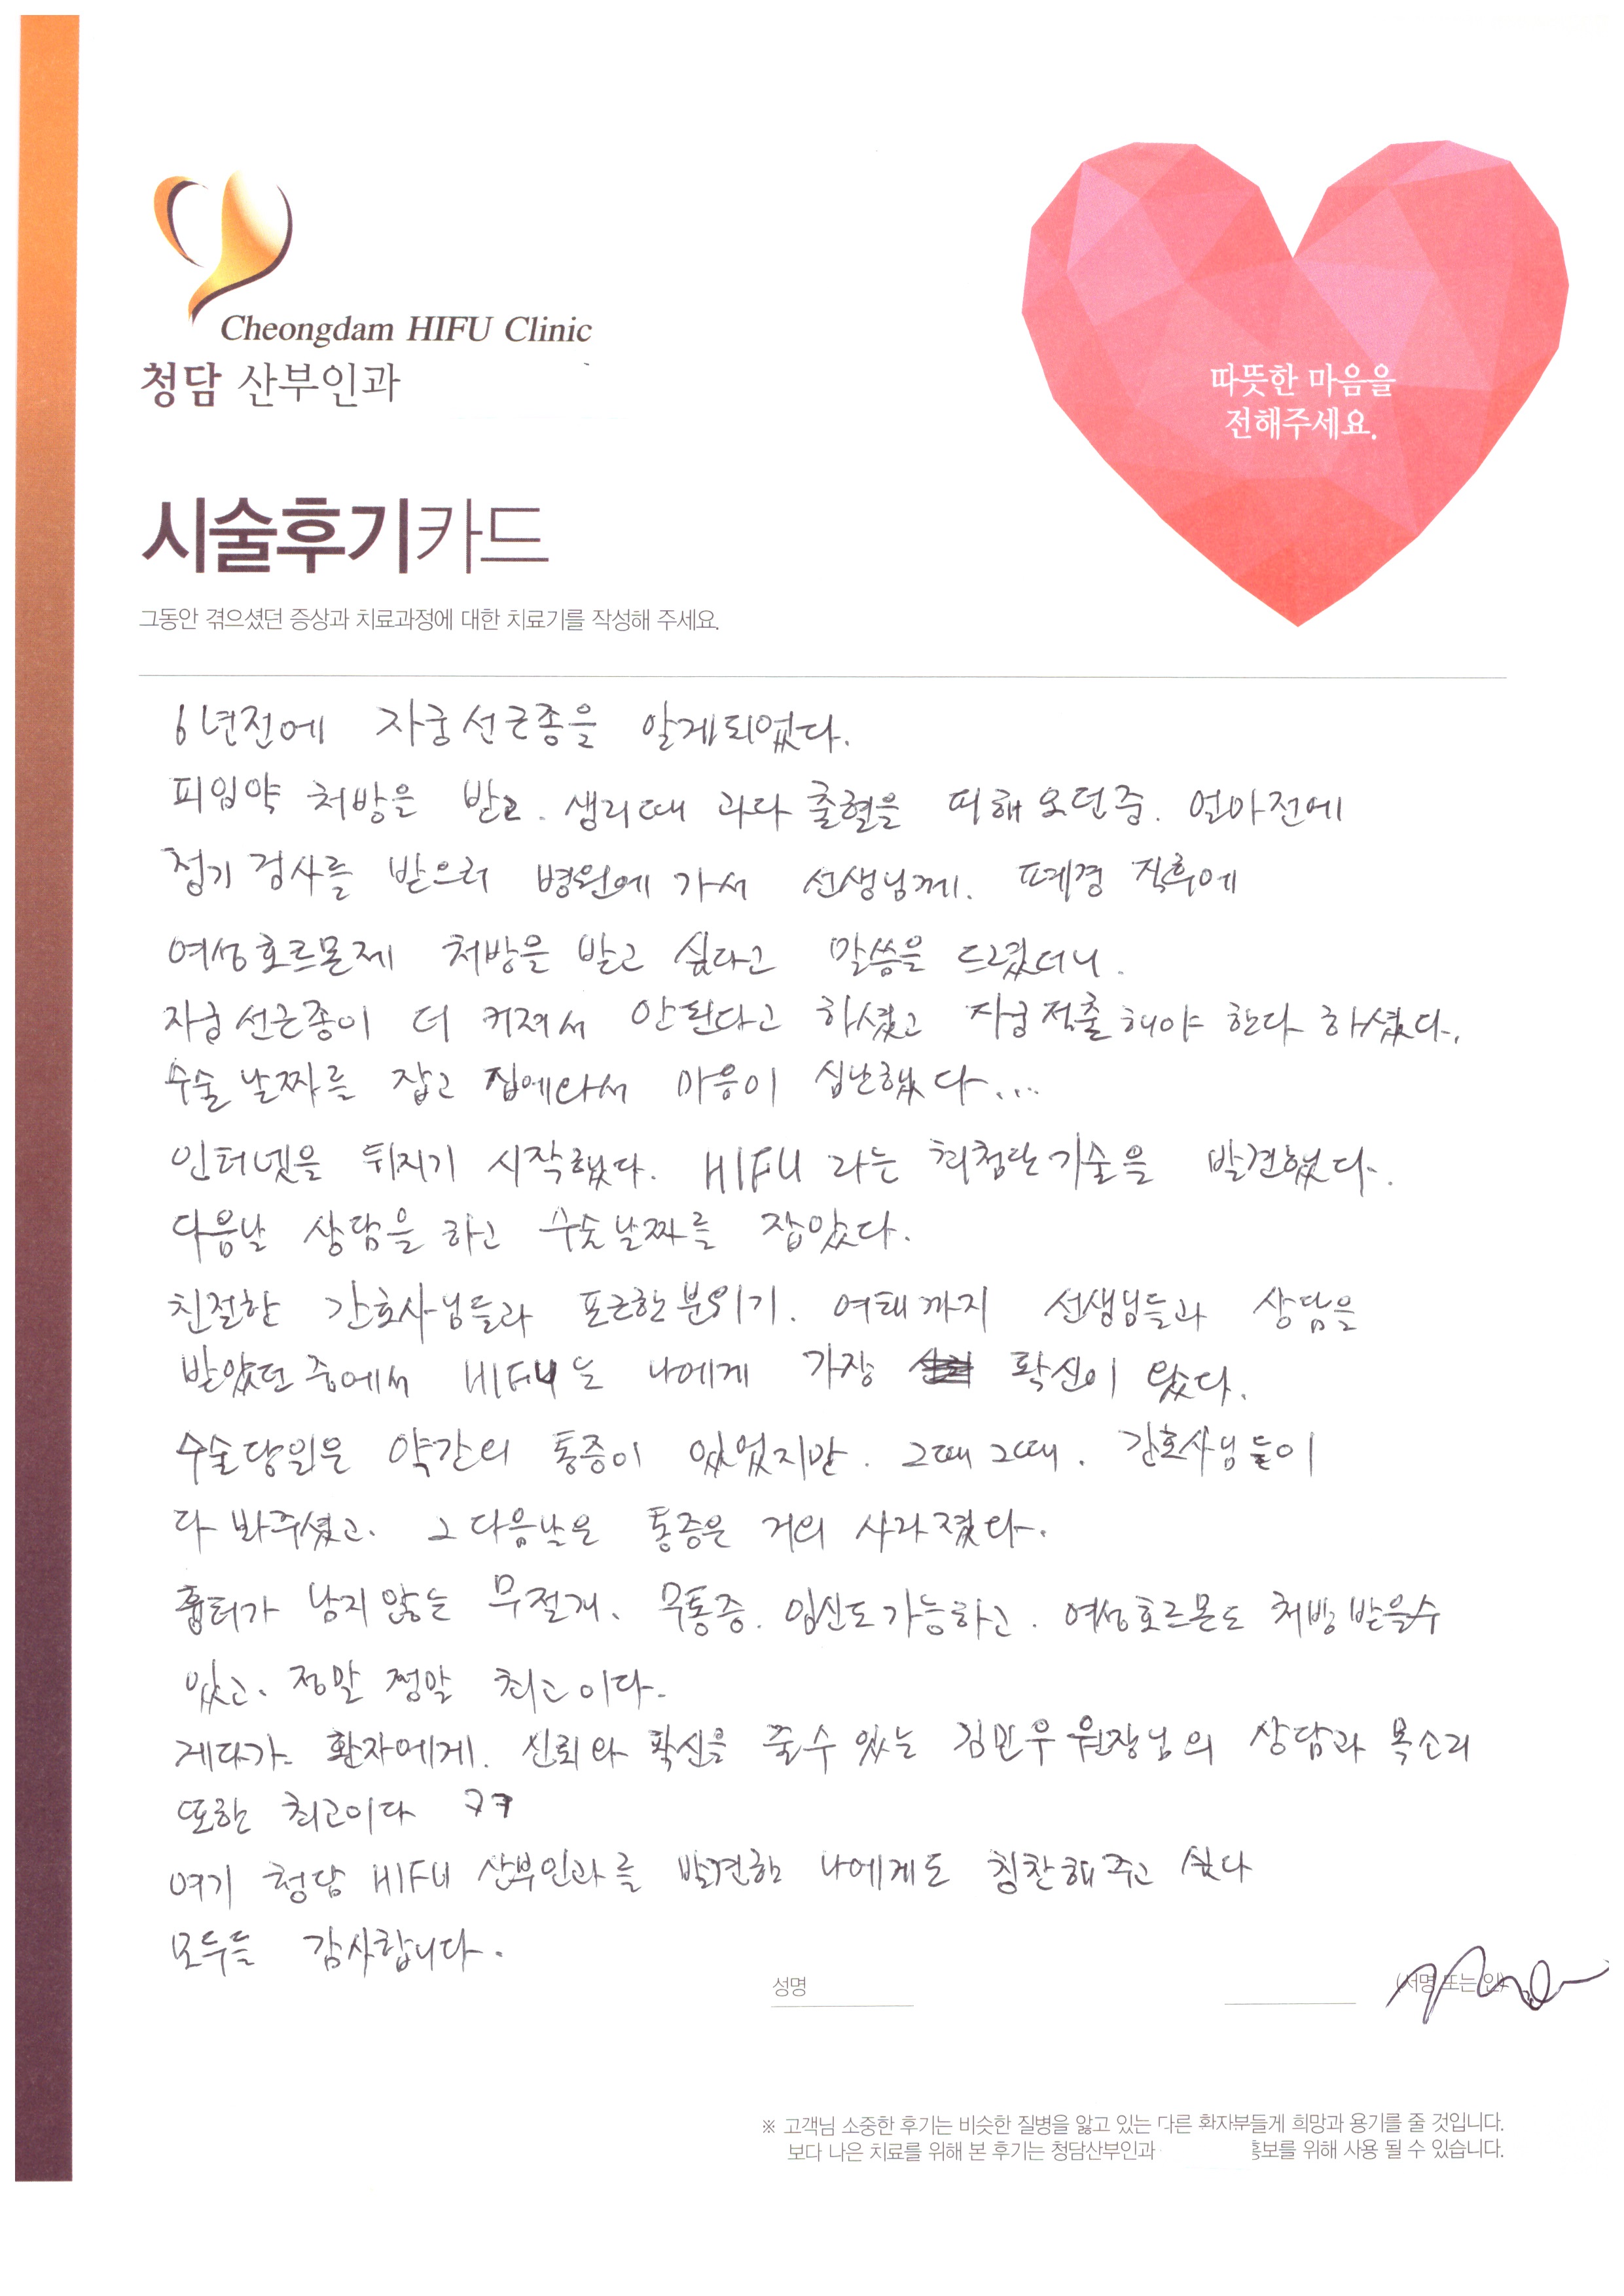 Cheongdam HIFU Clinic
청담 산부인과
따뜻한 마음을
전해주세요.
시술후기카드
그동안 겪으셨던 증상과 치료과정에 대한 치료기를 작성해 주세요.
6년전에 자궁선근종을 알게되었다.
피임약 처방을 받고. 생리때 과다 출혈을 피해오던중. 얼마전에
정기 검사를 받으러 병원에 가서 선생님께. 폐경 직후에
여성호르몬제 처방을 받고 싶다고 말씀을 드렸더니.
자궁선근종이 더 커져서 안된다고 하셨고 자궁적출해야 한다 하셨다.
수술 날짜를 잡고 집에와서 마음이 심난했다...
인터넷을 뒤지기 시작했다. HIFU 라는 최첨단기술을 발견했다.
다음날 상담을 하고 수술날짜를 잡았다.
친절한 간호사님들과 포근한분위기. 여태까지 선생님들과 상담을
받았던 중에서 HIFU는 나에게 가장 확신이 왔다.
수술당일은 약간의 통증이 있었지만. 그때그때. 간호사님들이
다 봐주셨고. 그 다음날은 통증은 거의 사라졌다.
흉터가 남지않는 무절개. 무통증. 임신도가능하고. 여성호르몬도 처방받을수
있고. 정말 정말 최고이다.
게다가. 환자에게. 신뢰와 확신을 줄수 있는 김민우 원장님의 상담과 목소리
또한 최고이다 ㅋㅋ
여기 청담 HIFU 산부인과를 발견한 나에게도 칭찬해주고 싶다
모두들 감사합니다.
성명 (서명 또는 인)
※ 고객님 소중한 후기는 비슷한 질병을 앓고 있는 다른 환자분들게 희망과 용기를 줄 것입니다.
보다 나은 치료를 위해 본 후기는 청담산부인과 홍보를 위해 사용 될 수 있습니다.